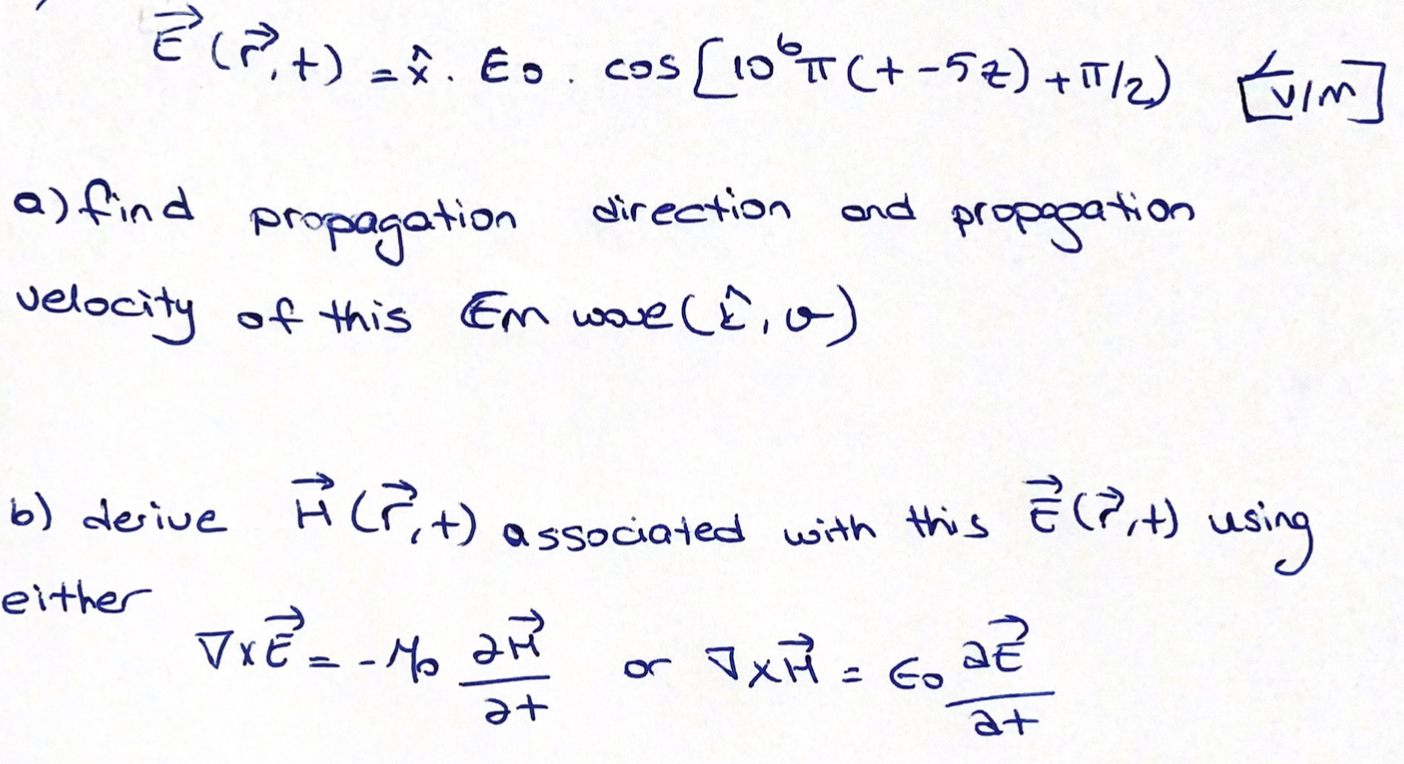 E⃗(r⃗,t) = x̂. E₀. cos[10⁶π(t-5z)+π/2) [V/m]
a) find propagation direction and propagation
velocity of this Em wave(k̂, v)
b) derive H⃗(r⃗,t) associated with this E⃗(r⃗,t) using
either
∇xE⃗ = -μ₀ ∂H⃗/∂t or ∇xH⃗ = ϵ₀ ∂E⃗/∂t